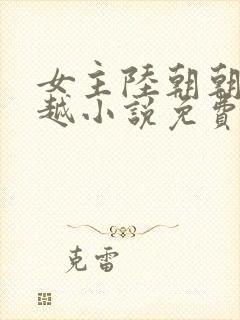 女主陸朝朝
越小說免費
克雷